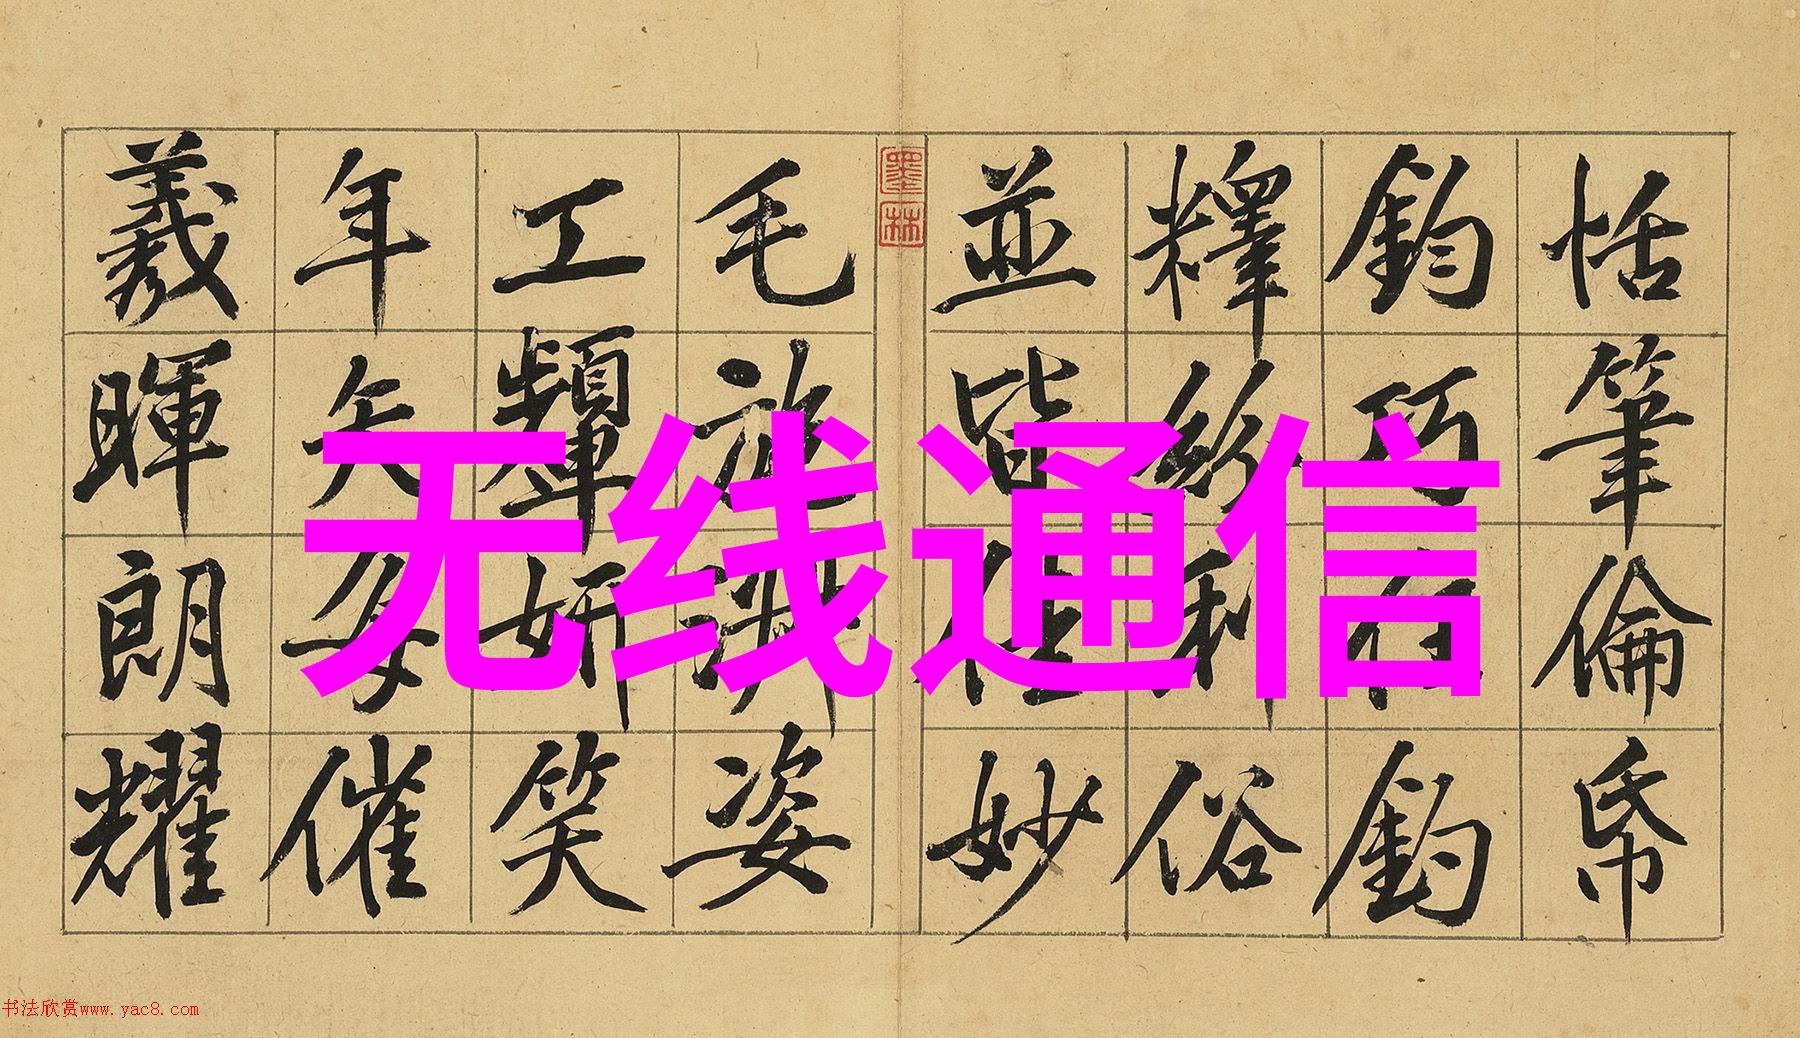 恬筆倫帋
鈞巧任釣
釋紛利俗
並皆佳妙
墨林
毛施淑姿
工顰妍笑
年矢每催
羲暉朗耀
无线通信
书法欣赏www.yac8.com